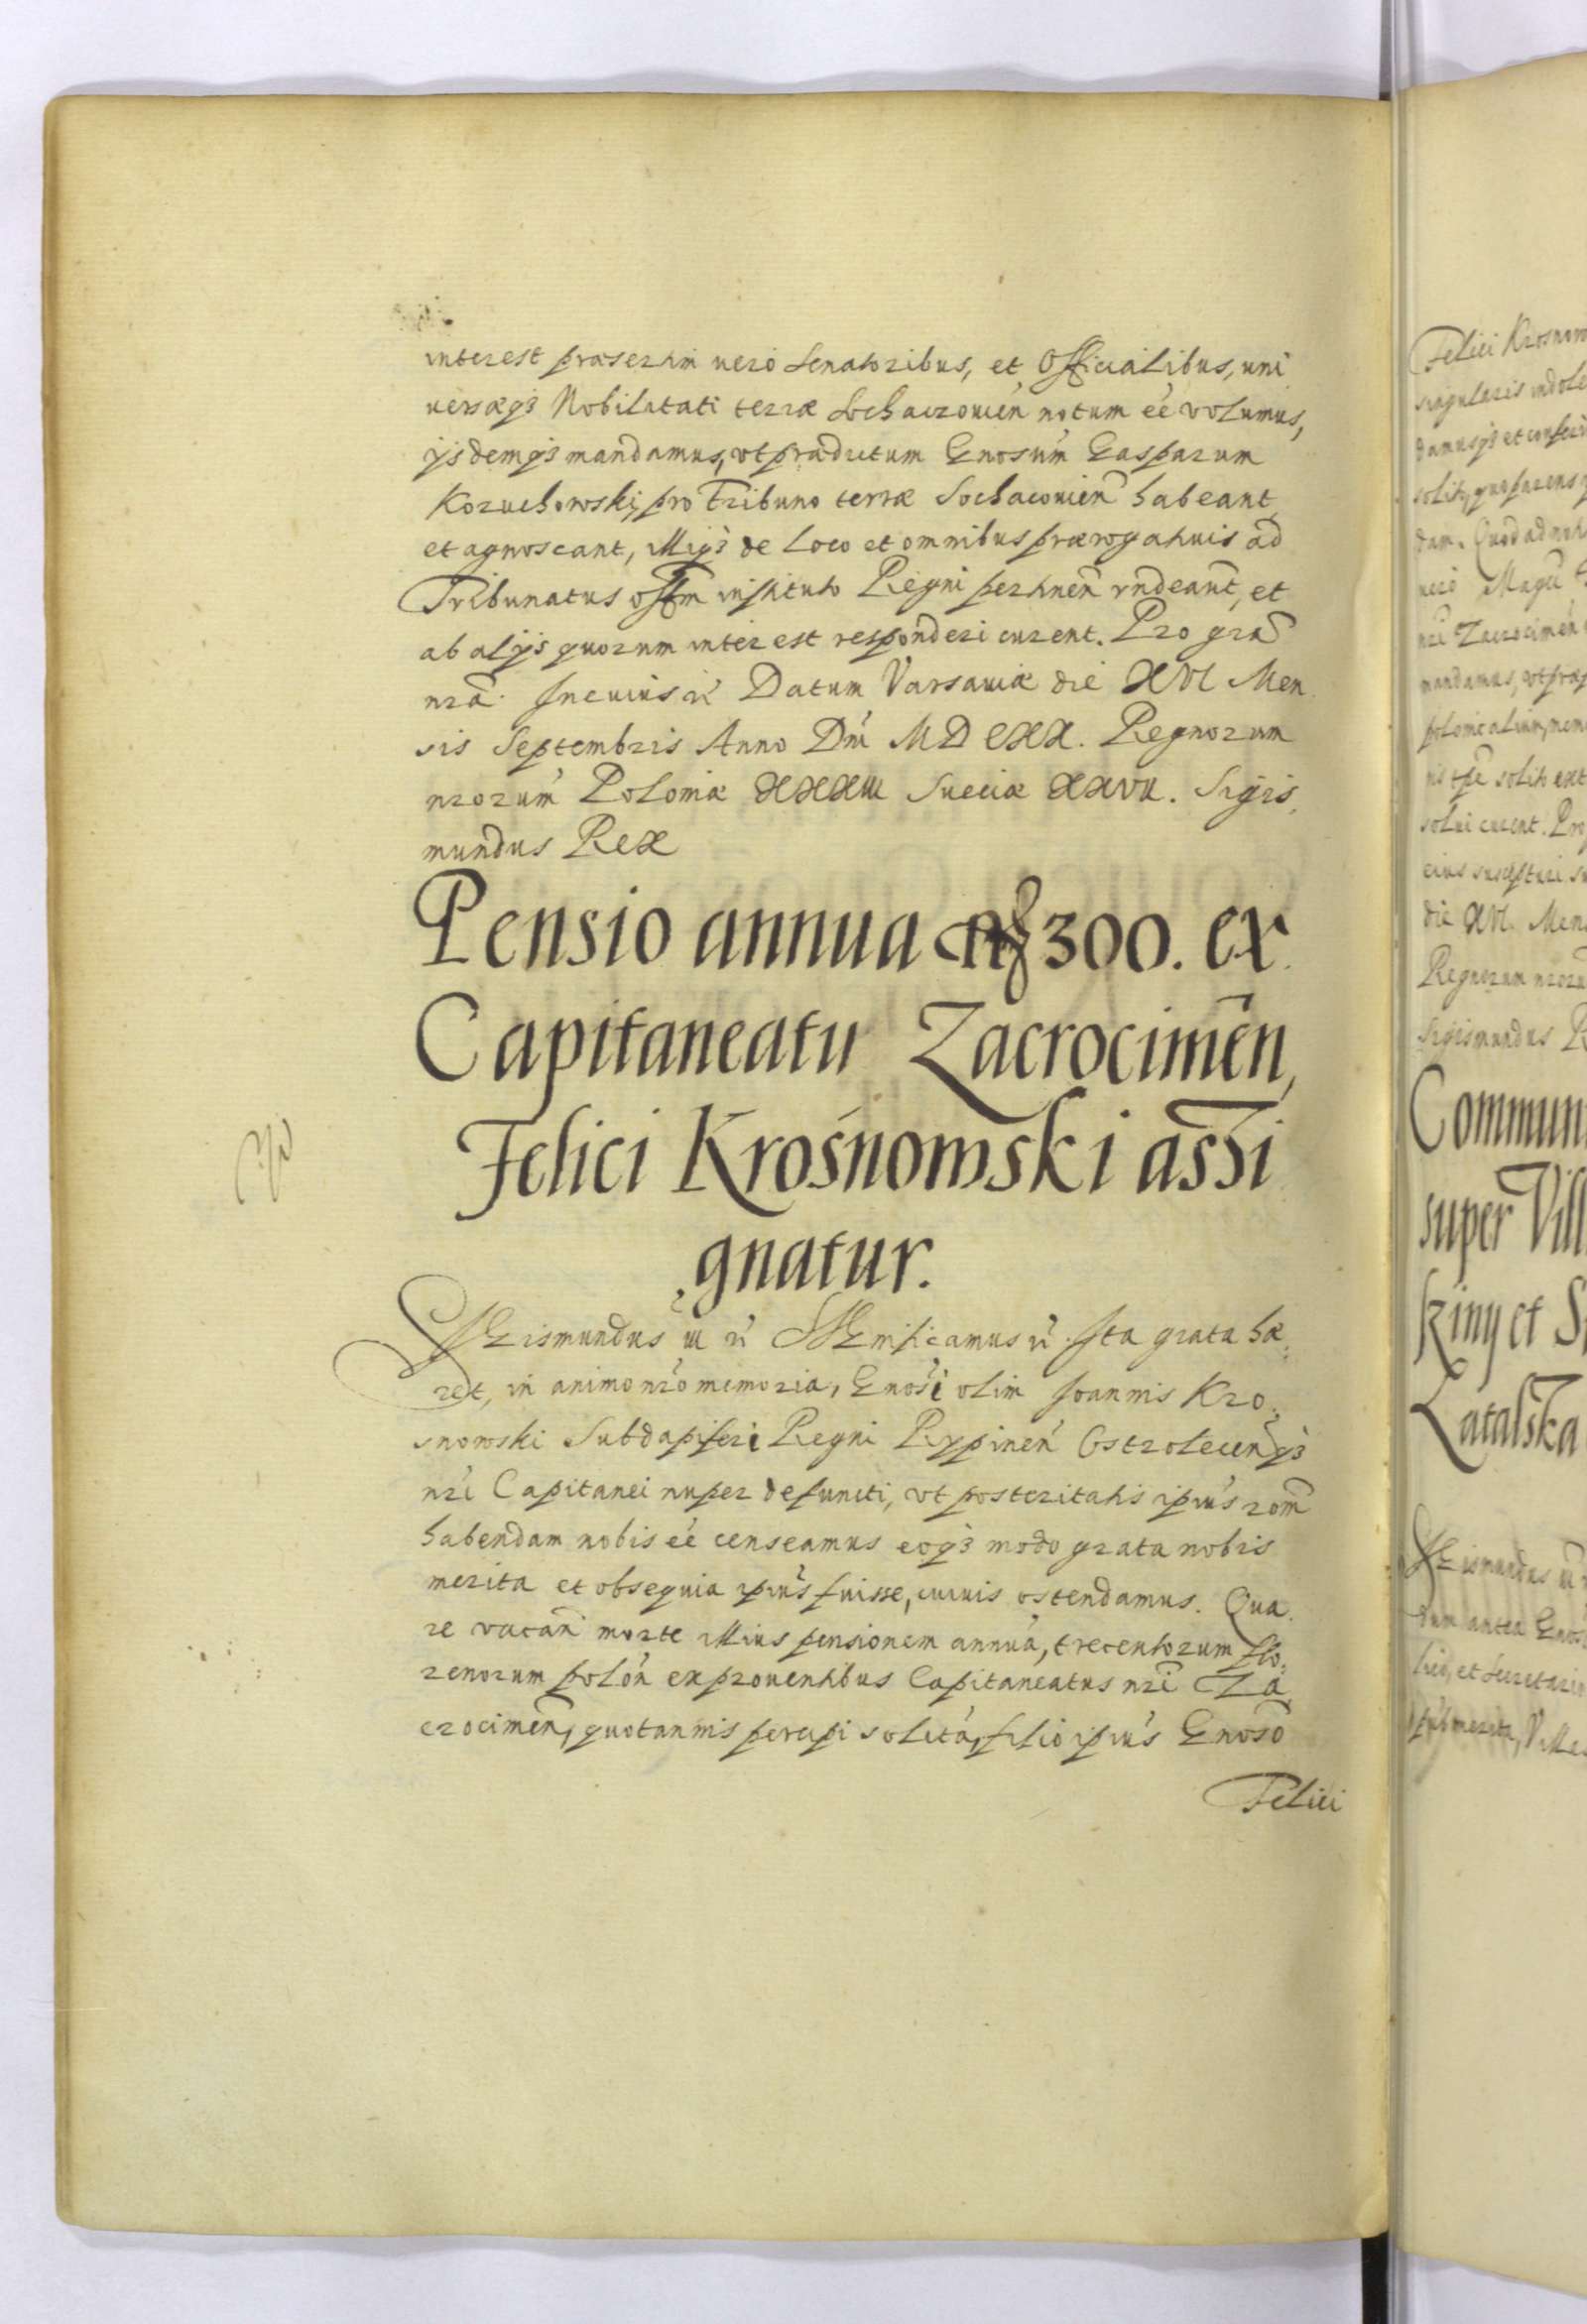 interest præsertim vero Senatoribus, et Officialibus, uni
versæq3 Nobilitati terræ Sochaczouień notum eé volumus,
ijsdemq3 mandamus, vt prædictum Gnosum Gasparum
Kozuchowski, pro Tribuno terræ Sochaconień habeant,
et agnoscant, Illiq3 de loco et omnibus prærogatiuis ad
Tribunatus offm instituto Regni pertineń rndeant, et
ab alijs quorum interest responderi curent. Pro gra
nra. In cuius rí Datum Varsauiæ die XVI Men
sis Septembris Anno Dni MDCXX. Regnorum
nrorum Poloniæ XXXIII Sueciæ XXVII. Sigis
mundus Rex
Pensio annua 300. ex
Capitaneatu Zacrocimeń,
Felici Krośnowski assi
gnatur.
SIGismundus III rí SIGnificamus rí. Ita grata hæ
ret, in animo nro memoria, Gnosi olim Joannis Kro
snowski Subdapiferi Regni Rypineń Ostroleceńq3
nri Capitanei nuper defuncti, vt posteritatis ipius rom
habendam nobis eé censeamus eoq3 modo grata nobis
merita et obsequia ipius fuisse, cuiuis ostendamus. Qua
re vacań morte illius pensionem annuá, trecentorum flo
renorum poloń ex prouentibus Capitaneatus nri Za
crocimeń, quotannis percipi solitá, filio ipius Gnoso
Felici
Felici Krosnow
singularis indole
damusq3 et confer
solih, quo parens
dam. Quod ad noti
vero Magci
nri Zacrocimeń
mandamus, vt præ
solui curent. Pro
eius suscepturi su
die XVI. Men
Regnorum nroru
Sigismundus R
Commun
super Vill
kiny et S
Latalska
SIGismundus III
dum antea Gnos